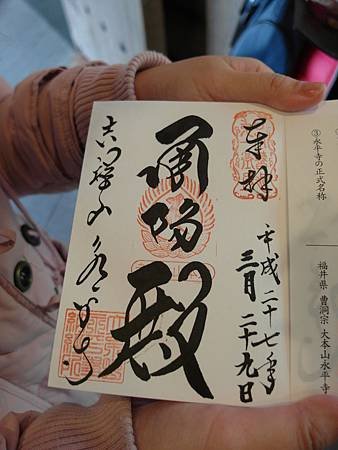 ③永平寺の正式名称
福井県 曹洞宗 大本山永平寺
奉拝
平成二十七年
三月二十九日
陽殿
吉祥山永平寺